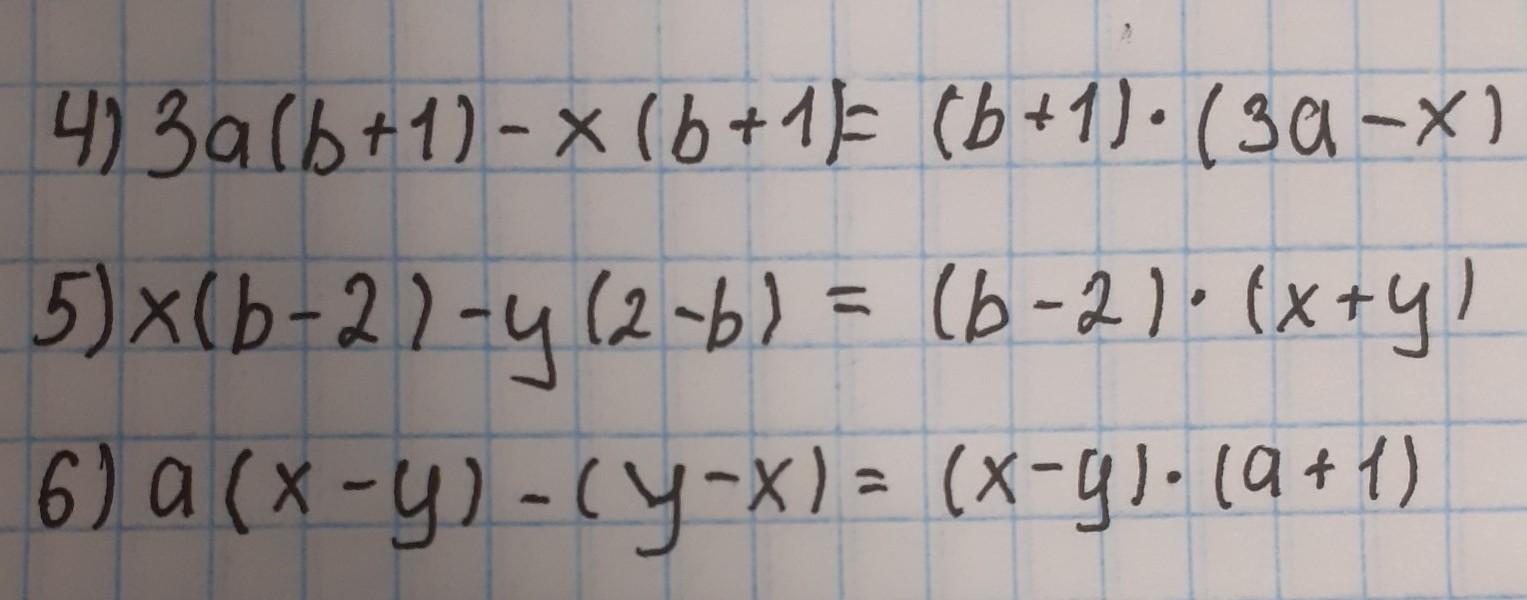 4) 3a(b+1) - x(b+1)= (b+1)·(3a-x)
5) x(b-2) - y(2-b) = (b-2)·(x+y)
6) a(x-y) - (y-x) = (x-y)·(a+1)